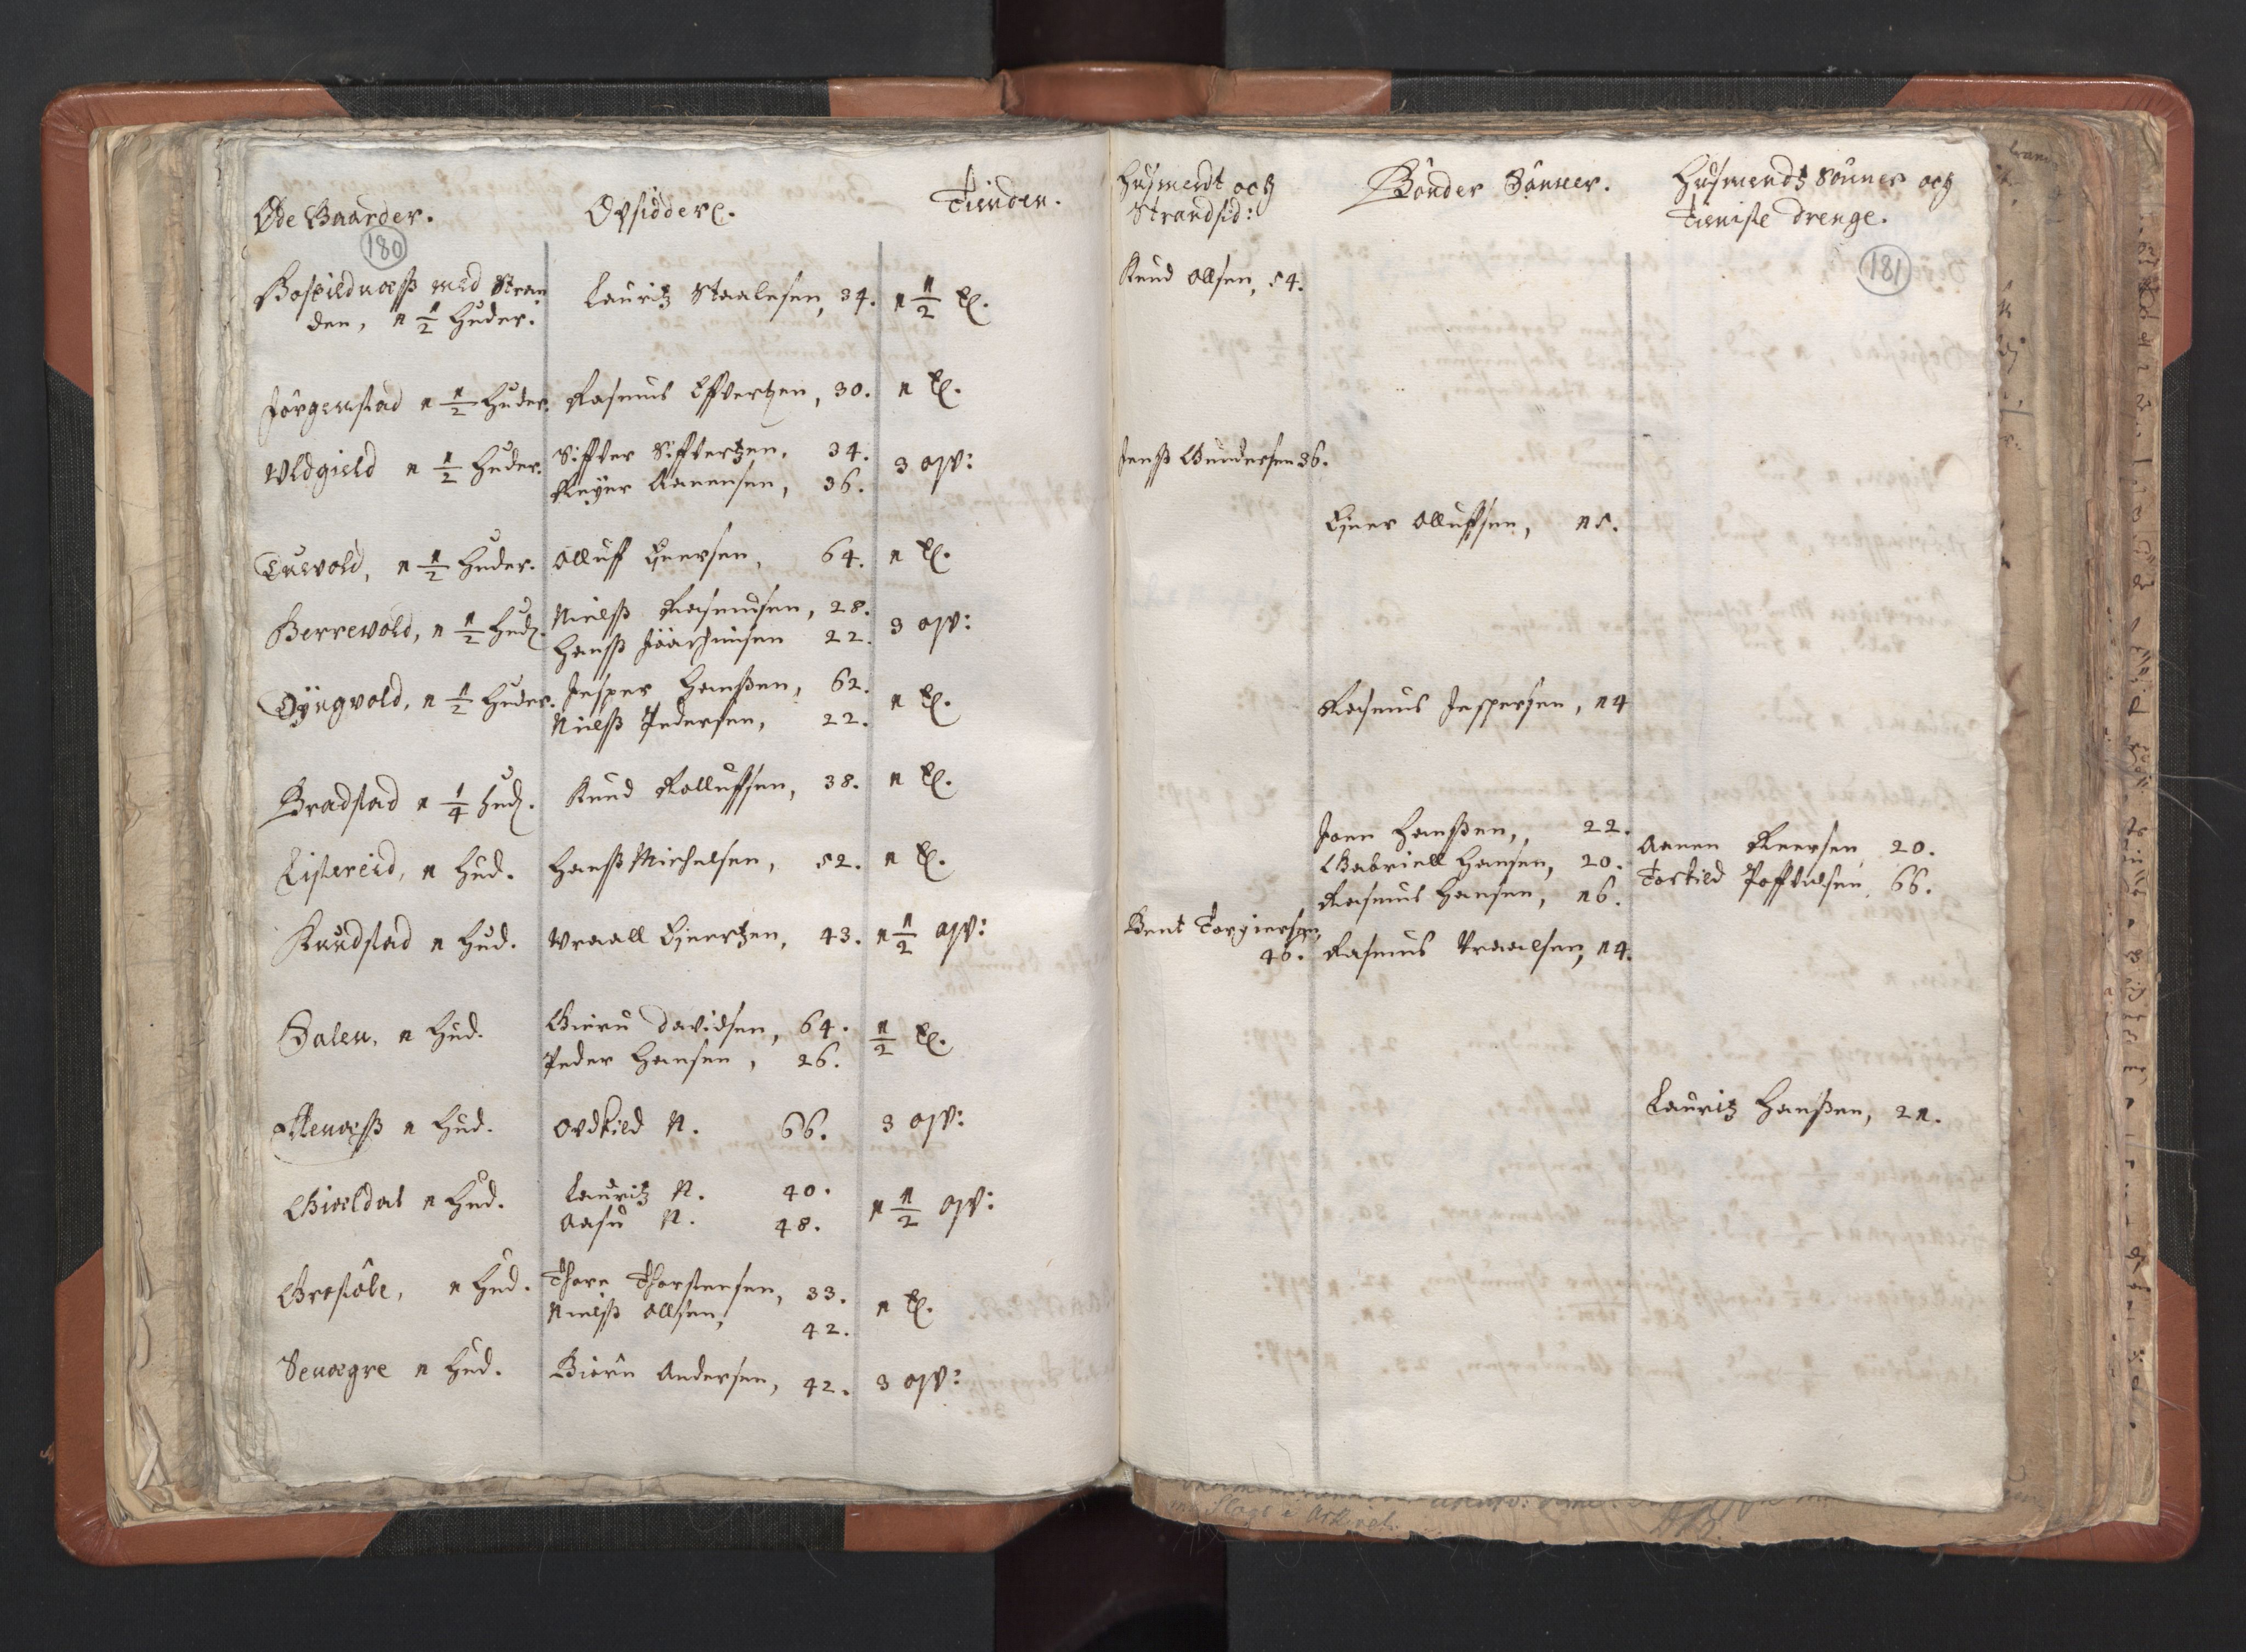 Øde Gaarder.
Opsiddere.
Tienden.
180
Boskildnæss med Stran
den, 1 1/2 Huder.
Lauritz Staalesen, 34.
1 1/2 t.
Jörgenstad 1 1/2 Huder.
Rasmus Effvertzen, 30.
1 t.
Uldgield 1 1/2 Huder.
Siffver Siffvertzen, 34.
Reÿer Aanensen, 36.
3 opv:
Tuevold, 1 1/2 Huder.
Olluff Ejersen, 64.
1 t.
Berrevold, 1 1/2 Hud.
Nielss Rasmusen, 28.
Hanss Joachimsen 22.
3 opv:
Dÿngvold, 1 1/2 Huder.
Jesper Hanssen, 62.
Nielss Pedersen, 22.
1 t.
Bradstad 1 1/4 Hud.
Knud Rolluffsen, 38.
1 t.
Listereid, 1 Hud.
Hanss Michelsen, 52.
1 t.
Knudstad 1 Hud.
Vraall Ejnertzen, 43.
1 1/2 opv:
Dalen, 1 Hud.
Gieru Davidsen, 64.
Peder Hansen, 26.
1/2 t.
Alenæss 1 Hud.
Ordkild N. 66.
3 opv:
Gieldal 1 Hud.
Lauritz N. 40.
Aasu N. 48.
1 1/2 opv:
Grostöle, 1 Hud.
Thore Thorstensen, 33.
Nielss Ollsen, 42.
1 t.
Sevægre 1 Hud.
Biörn Andersen, 42.
3 opv:
Husmendt och
Strandsid:
Bönder Sönner.
Husmendtz Sönner och
Tieniste drenge.
181
Knud Ollsen, 54.
Jenss Gundersen 36.
Ejner Olluffsen, 15.
Rasmus Jespersen, 14
Joen Hanssen, 22.
Gabriell Hansen, 20.
Rasmus Hansen, 16.
Aanen Reersen 20.
Torkild Poffvelsen 66.
Bent Torgiersen,
46.
Rasmus Vraalsen, 14.
Lauritz Hanssen, 21.